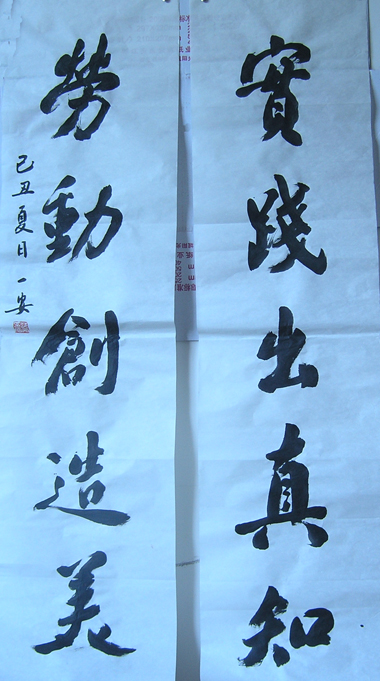 實踐出真知
勞動創造美
己丑夏日 一安